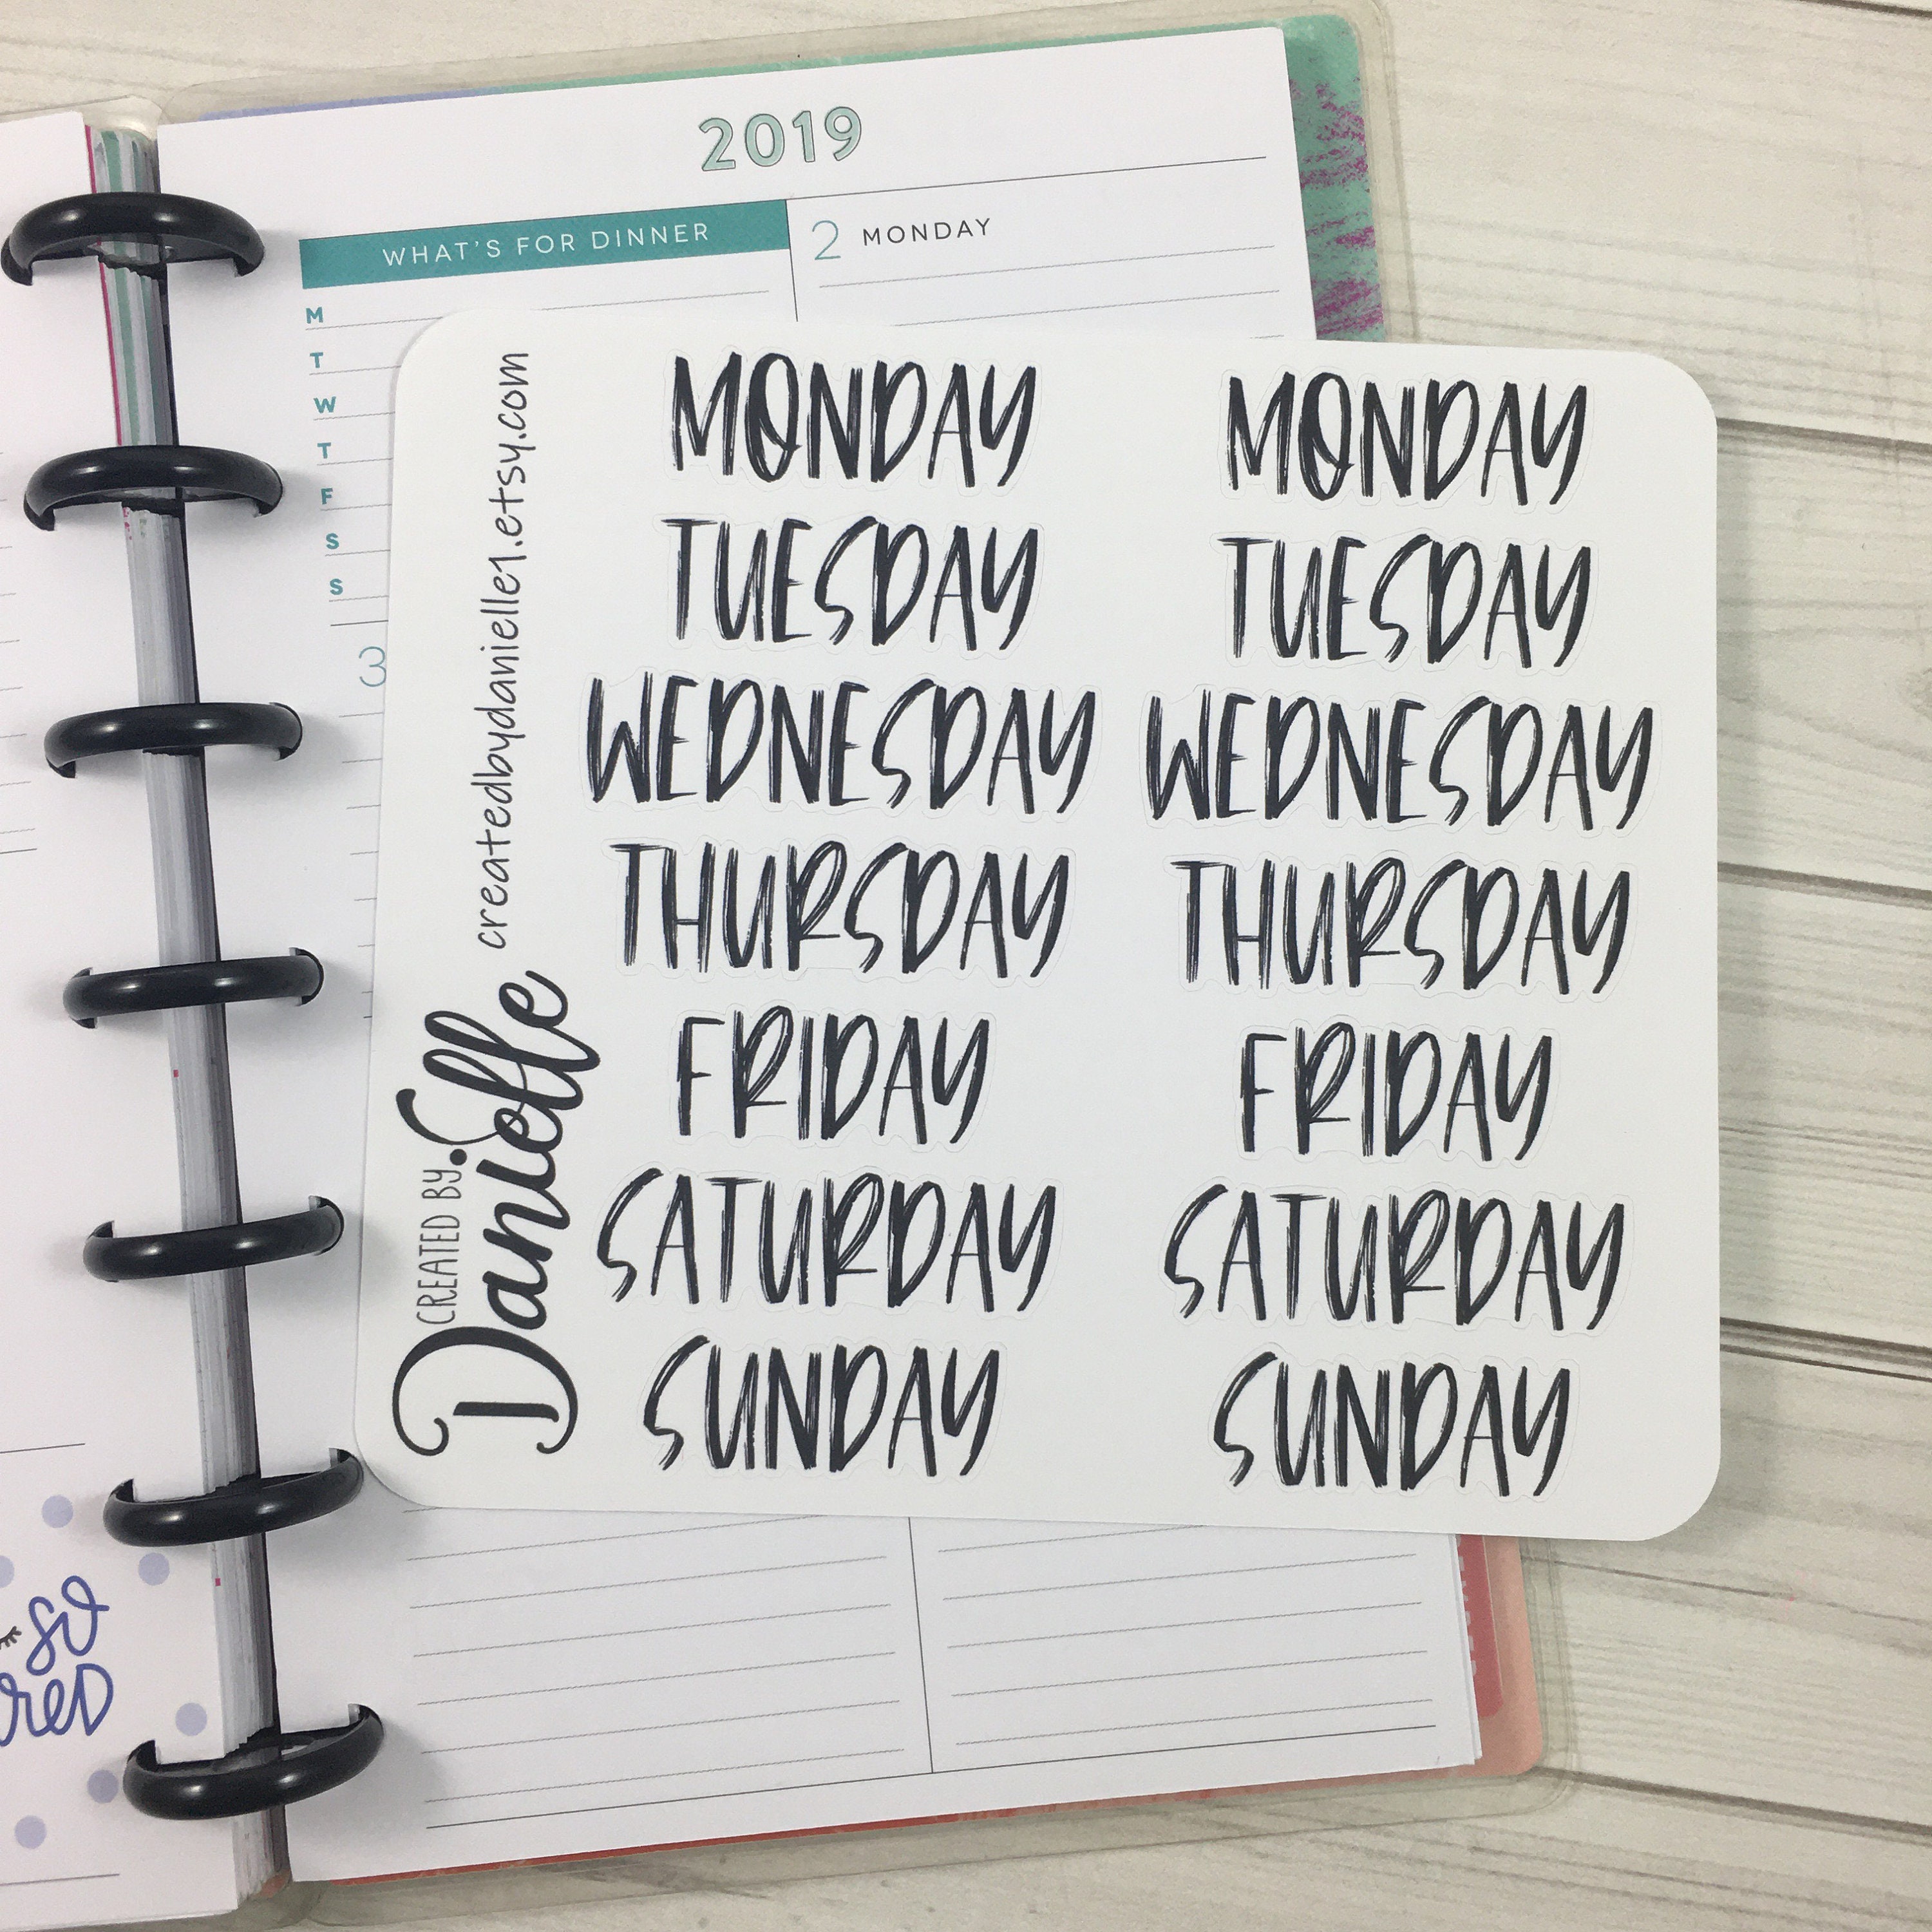 2019
WHAT'S FOR DINNER
2 MONDAY
M
T
W
T
F
S
S
3
CREATED BY
Danielle
createdbydanielle1.etsy.com
MONDAY MONDAY
TUESDAY TUESDAY
WEDNESDAY WEDNESDAY
THURSDAY THURSDAY
FRIDAY FRIDAY
SATURDAY SATURDAY
SUNDAY SUNDAY
so